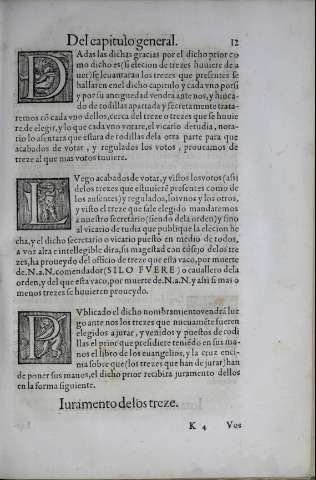 Del capitulo general. 12
DAdas las dichas gracias por el dicho prior co
mo dicho es (si elecion de trezes huuiere de a
uer) se leuantaran los trezes que presentes se
hallaren en el dicho capitulo y cada vno por si
y por su antiguedad vendra ante nos, y hinca-
do de rodillas apartada y secretamente trata-
remos cõ cada vno dellos, cerca del treze o trezes que se huuie
re de elegir, y lo que cada vno votare, el vicario de tudia, nota-
rio lo asentara que estara de rodillas dela otra parte para que
acabados de votar, y regulados los votos, proueamos de
treze al que mas votos tuuiere.
LVego acabados de votar, y vistos los votos (assi
de los trezes que estuuierẽ presentes como de
los ausentes) y regulados, los vnos y los otros,
y visto el treze que sale elegido mandaremos
a nuestro secretario (siendo dela orden) y sino
al vicario de tudia que publique la elecion he
cha, y el dicho secretario o vicario puesto en medio de todos,
a voz alta e intellegible dira, su magestad con cõsejo delos tre
zes, ha proueydo del officio de treze que esta vaco, por muerte
de .N. a .N. comendador (SI LO FVERE) o cauallero dela
orden, y del que esta vaco, por muerte de .N. a .N. y assi si mas o
menos trezes se huuieren proueydo.
PVblicado el dicho nombramiento vendrã lue
go ante nos los trezes que nueuamẽte fueren
elegidos a jurar, y venidos y puestos de rodi
llas el prior que presidiere teniẽdo en sus ma-
nos el libro de los euangelios, y la cruz enci-
ma sobre que (los trezes que han de jurar) han
de poner sus manos, el dicho prior recibira juramento dellos
en la forma siguiente.
Iuramento delos treze.
K 4 Vos